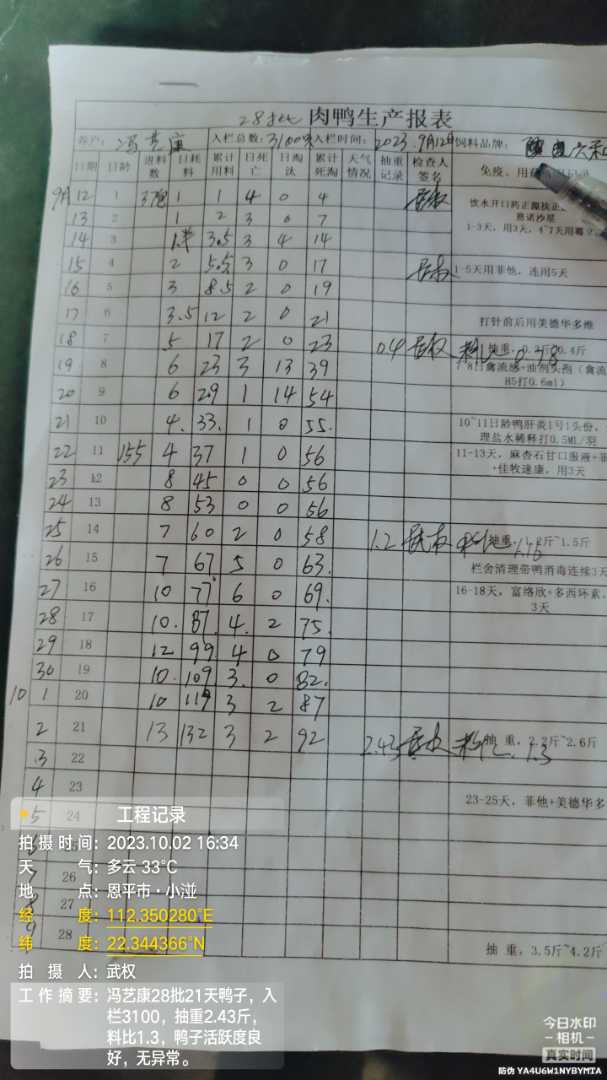 28批 肉鸭生产报表
客户: 冯艺康 入栏总数: 3100只 入栏时间: 2023.9月12日 饲料品牌:
日期 日龄 进料数 日耗料 累计用料 日死亡 日淘汰 累计死淘 天气情况 抽重记录 检查人签名 免疫、用
9月12 1 1 1 4 0 4 饮水开口药正源扶正
恩诺沙星
13 2 1 2 3 0 7 1-3天,用3天,4-7天用霉
14 3 3.5 3 4 14
15 4 2 5.5 3 0 17 1-5天用菲他,连用5天
16 5 3 8.5 2 0 19
17 6 3.5 12 2 0 21 打针前后用美德华多维
18 7 5 17 2 0 23 0.4 抽重:0.4斤
19 8 6 23 3 13 39 禽流感+油剂头剂(禽流
H5打0.6ml)
20 9 6 29 1 14 54
21 10 4 33 1 0 55 10~11日龄鸭肝炎1号1头份,
理盐水稀释打0.5Ml/羽
22 11 155 4 37 1 0 56 11-13天,麻杏石甘口服液+菲
+佳牧速康,用3天
23 12 8 45 0 0 56
24 13 8 53 0 0 56
25 14 7 60 2 0 58 1.2 抽重:斤~1.5斤
26 15 7 67 5 0 63 栏舍清理带鸭消毒连续3天
27 16 10 77 6 0 69 16-18天,富络欣+多西环素,
3天
28 17 10 87 4 2 75
29 18 12 99 4 0 79
30 19 10 109 3 0 82
10 1 20 10 119 3 2 87
2 21 13 132 3 2 92 2.43 料比1.3 抽重:2.2斤~2.6斤
3 22
4 23 23-25天,菲他+美德华多
5 24
26
27
28 抽重:3.5斤~4.2斤
工程记录
拍摄时间: 2023.10.02 16:34
天气: 多云 33°C
地点: 恩平市·小湴
经度: 112.350280°E
纬度: 22.344366°N
拍摄人: 武权
工作摘要: 冯艺康28批21天鸭子,入
栏3100,抽重2.43斤,
料比1.3,鸭子活跃度良
好,无异常。
今日水印
-相机-
真实时间
防伪 YA4U6W1NYBYMTA